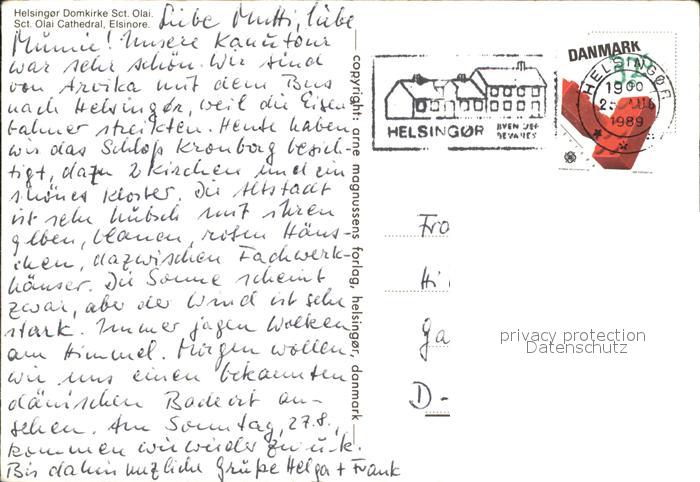 Helsingør Domkirke Sct. Olai.
Sct. Olai Cathedral, Elsinore.
Liebe Mutti, liebe
Mumie! Unsere Kanutour
war sehr schön. Wir sind
von Arvika mit dem Bus
nach Helsingør, weil die Eisen-
bahner streikten. Heute haben
wir das Schloß Kronborg besich-
tigt, dazu 2 Kirchen und ein
schönes Kloster. Die Altstadt
ist sehr hübsch mit ihren
gelben, blauen, roten Häus-
chen, dazwischen Fachwerk-
häuser. Die Sonne scheint
zwar, aber der Wind ist sehr
stark. Immer jagen Wolken
am Himmel. Morgen wollen
wir uns einen bekannten
dänischen Badeort an-
sehen. Am Sonntag, 27.8.,
kommen wir wieder zurück.
Bis dahin herzliche Grüße Helga + Frank
copyright: arne magnussens forlag, helsingør, danmark
HELSINGØR
BYEN DER
BEVARES
DANMARK
HELSINGØR
1900
1989
Fra
Hi
Ga
D-
privacy protection
Datenschutz